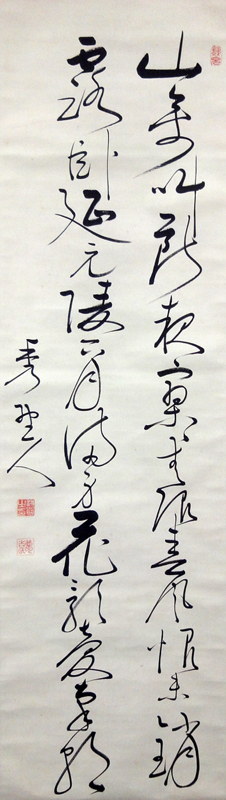 山禽叫断夜寥々無限春風恨未銷
露臥延元陵下月満身花影夢南朝
秀人